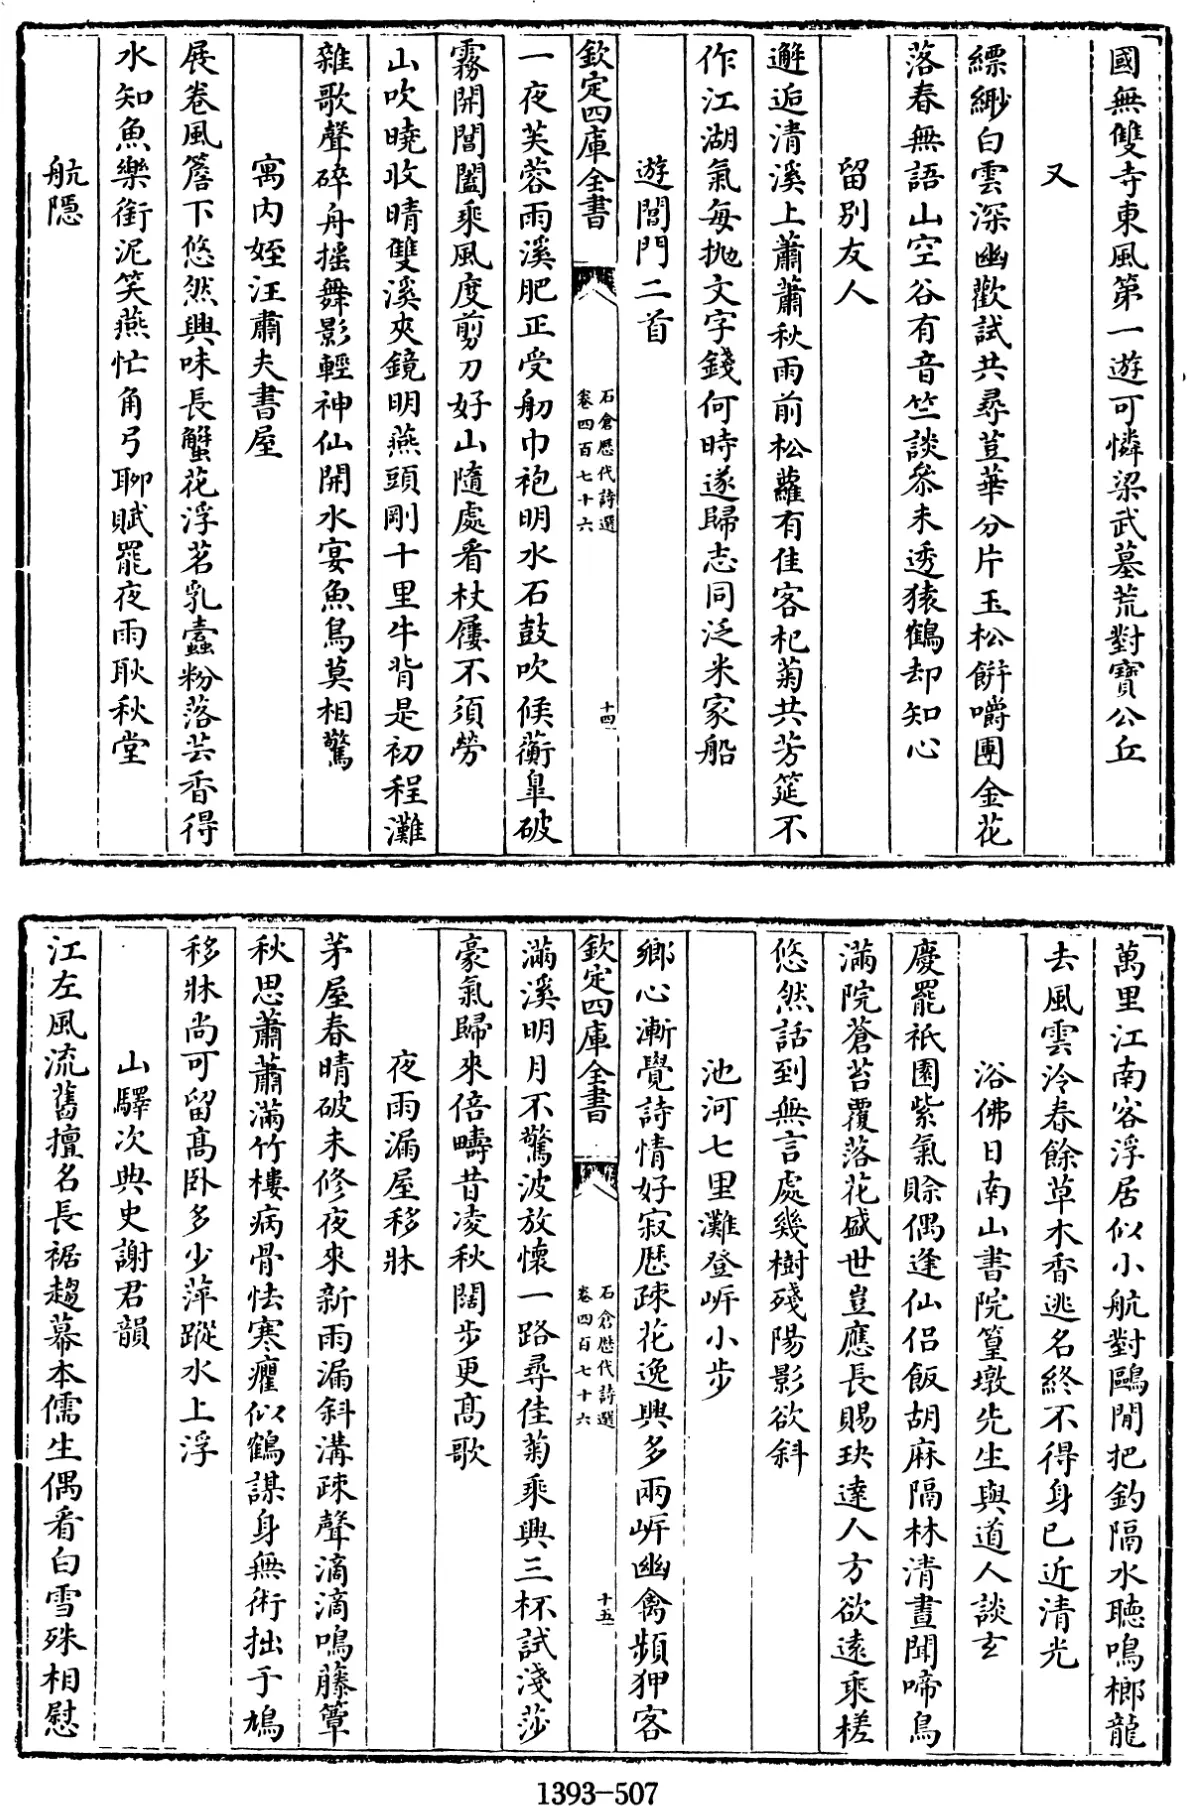 國無雙寺東風第一遊可憐梁武墓荒對寶公丘
又
縹緲白雲深幽歡試共尋荳華分片玉松餅嚼團金花
落春無語山空谷有音竺談參未透猿鶴却知心
留别友人
邂逅清溪上蕭蕭秋雨前松蘿有佳客杞菊共芳筵不
作江湖氣每抛文字錢何時遂歸志同泛米家船
遊閶門二首
欽定四庫全書
石倉歷代詩選
卷四百七十六
十四
一夜芙蓉雨溪肥正受舠巾袍明水石鼓吹候蘅臯破
霧開閶闔乘風度剪刀好山隨處看杖屨不須勞
山吹曉收晴雙溪夾鏡明燕頭剛十里牛背是初程灘
雜歌聲碎舟摇舞影輕神仙開水宴魚鳥莫相驚
寓内姪汪肅夫書屋
展卷風簷下悠然興味長蟹花浮茗乳蠧粉落芸香得
水知魚樂銜泥笑燕忙角弓聊賦罷夜雨耿秋堂
航隱
萬里江南客浮居似小航對鷗閒把釣隔水聽鳴榔龍
去風雲冷春餘草木香逃名終不得身已近清光
浴佛日南山書院篁墩先生與道人談玄
慶罷祇園紫氣賖偶逢仙侣飯胡麻隔林清晝聞啼鳥
滿院蒼苔覆落花盛世豈應長賜玦達人方欲遠乘槎
悠然話到無言處幾樹殘陽影欲斜
池河七里灘登岸小步
鄉心漸覺詩情好寂歷疎花逸興多兩岸幽禽頻狎客
欽定四庫全書
石倉歷代詩選
卷四百七十六
十五
滿溪明月不驚波放懷一路尋佳菊乘興三杯試淺莎
豪氣歸來倍疇昔凌秋闊步更高歌
夜雨漏屋移牀
茅屋春晴破未修夜來新雨漏斜溝疎聲滴滴鳴藤簟
秋思蕭蕭滿竹樓病骨怯寒癯似鶴謀身無術拙于鳩
移牀尚可留高卧多少萍蹤水上浮
山驛次典史謝君韻
江左風流舊擅名長裾趨幕本儒生偶看白雪殊相慰
1393-507